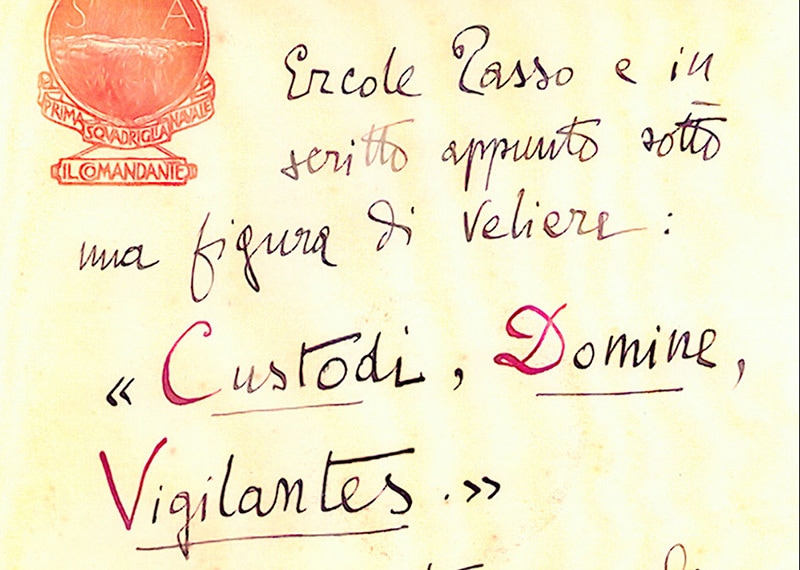 S A
PRIMA SQUADRIGLIA NAVALE
IL COMANDANTE
Ercole Tasso e in
scritto appunto sotto
una figura di Veliere :
« Custodi , Domine ,
Vigilantes . »